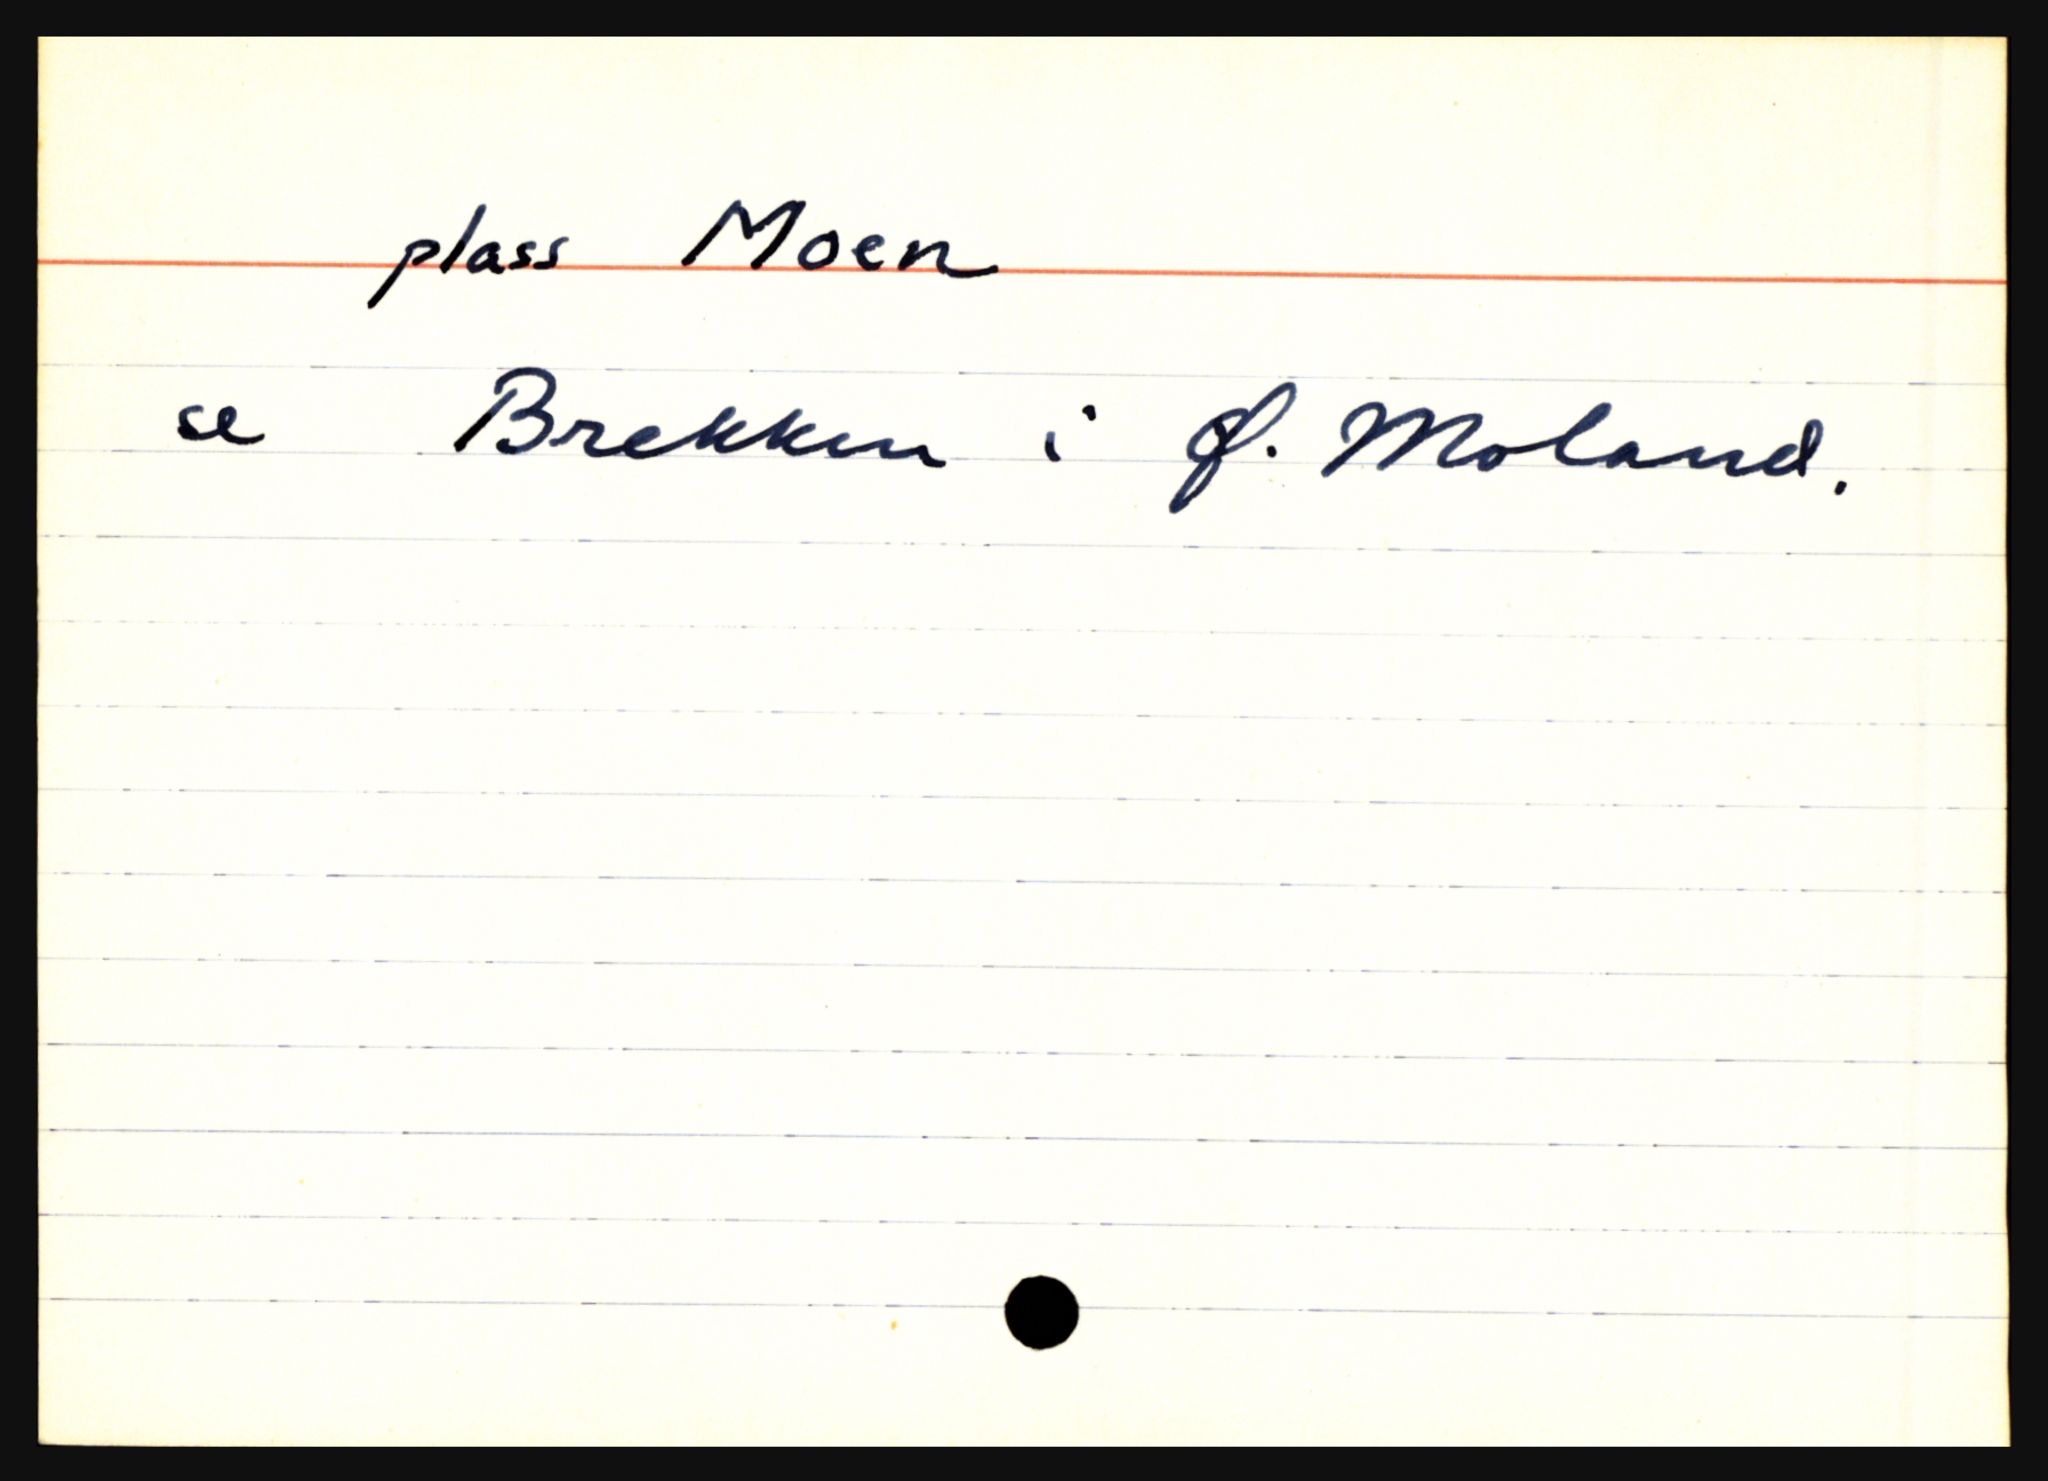 plass Moen
se Brekken i Ø. Moland.